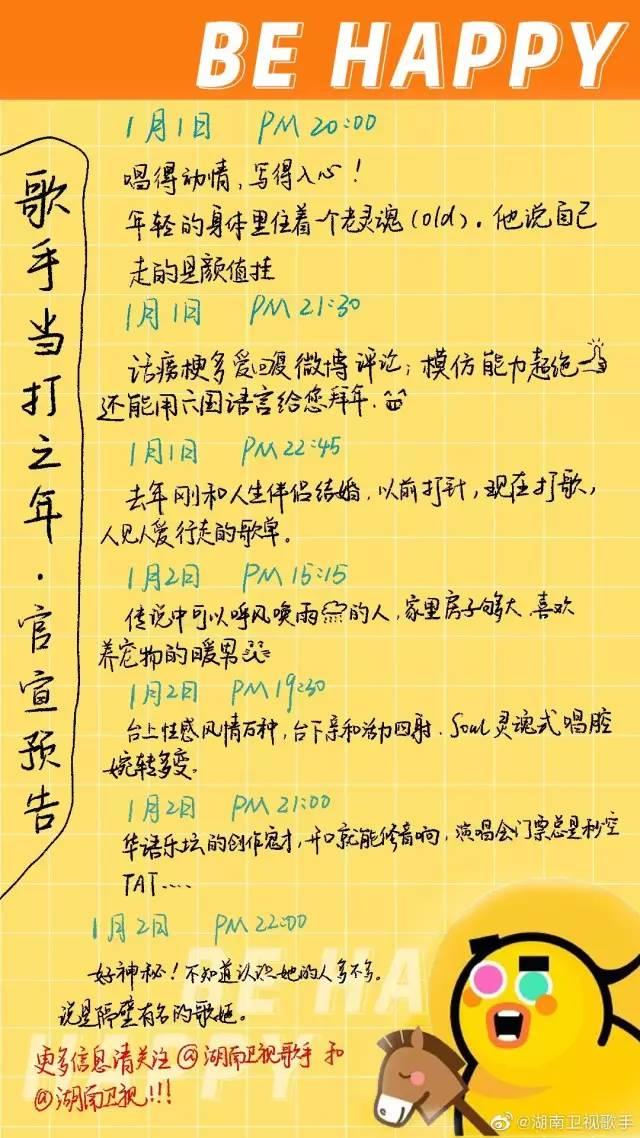 BE HAPPY
歌手当打之年·官宣预告
1月1日 PM 20:00
唱得动情，写得入心！
年轻的身体里住着一个老灵魂(old)。他说自己
走的是颜值挂
1月1日 PM 21:30
话痨梗多爱回复微博评论；模仿能力超绝
还能用六国语言给您拜年.
1月1日 PM 22:45
去年刚和人生伴侣结婚，以前打针，现在打歌，
人见人爱行走的歌单。
1月2日 PM 15:15
传说中可以呼风唤雨的人，家里房子够大，喜欢
养宠物的暖男
1月2日 PM 19:30
台上性感风情万种，台下亲和活力四射．Soul灵魂式唱腔
婉转多变。
1月2日 PM 21:00
华语乐坛的创作鬼才，开口就能修音响，演唱会门票总是秒空
TAT....
1月2日 PM 22:00
好神秘！不知道认识她的人多不多。
说是隔壁有名的歌姬。
更多信息请关注@湖南卫视歌手 和
@湖南卫视!!!
BE HA
HAPPY
@湖南卫视歌手